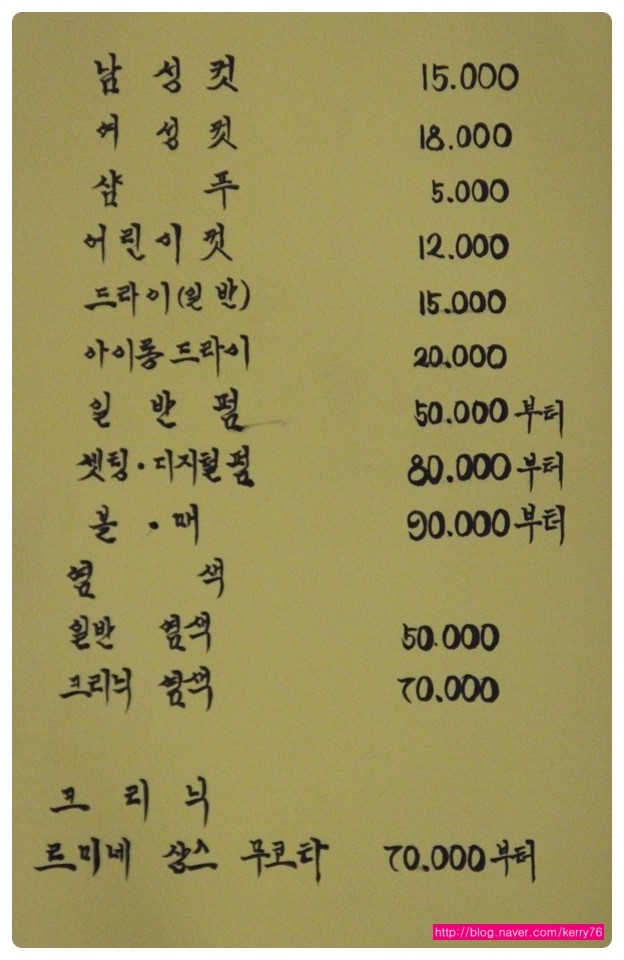 남성컷 15.000
여성컷 18.000
샴푸 5.000
어린이컷 12.000
드라이(일반) 15.000
아이롱드라이 20.000
일반펌 50.000부터
셋팅·디지털펌 80.000부터
볼·매 90.000부터
염색
일반 염색 50.000
크리닉 염색 70.000
크리닉
르미네 상스 무코타 70.000부터
http://blog.naver.com/kerry76